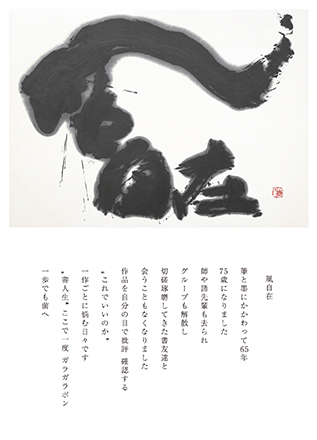 風自在
風自在
筆と墨にかかわって65年
75歳になりました
師や諸先輩も去られ
グループも解散し
切磋琢磨してきた書友達と
会うこともなくなりました
作品を自分の目で批評 確認する
〝これでいいのか〟
一作ごとに悩む日々です
〝書人生〟ここで一度 ガラガラポン
一歩でも前へ